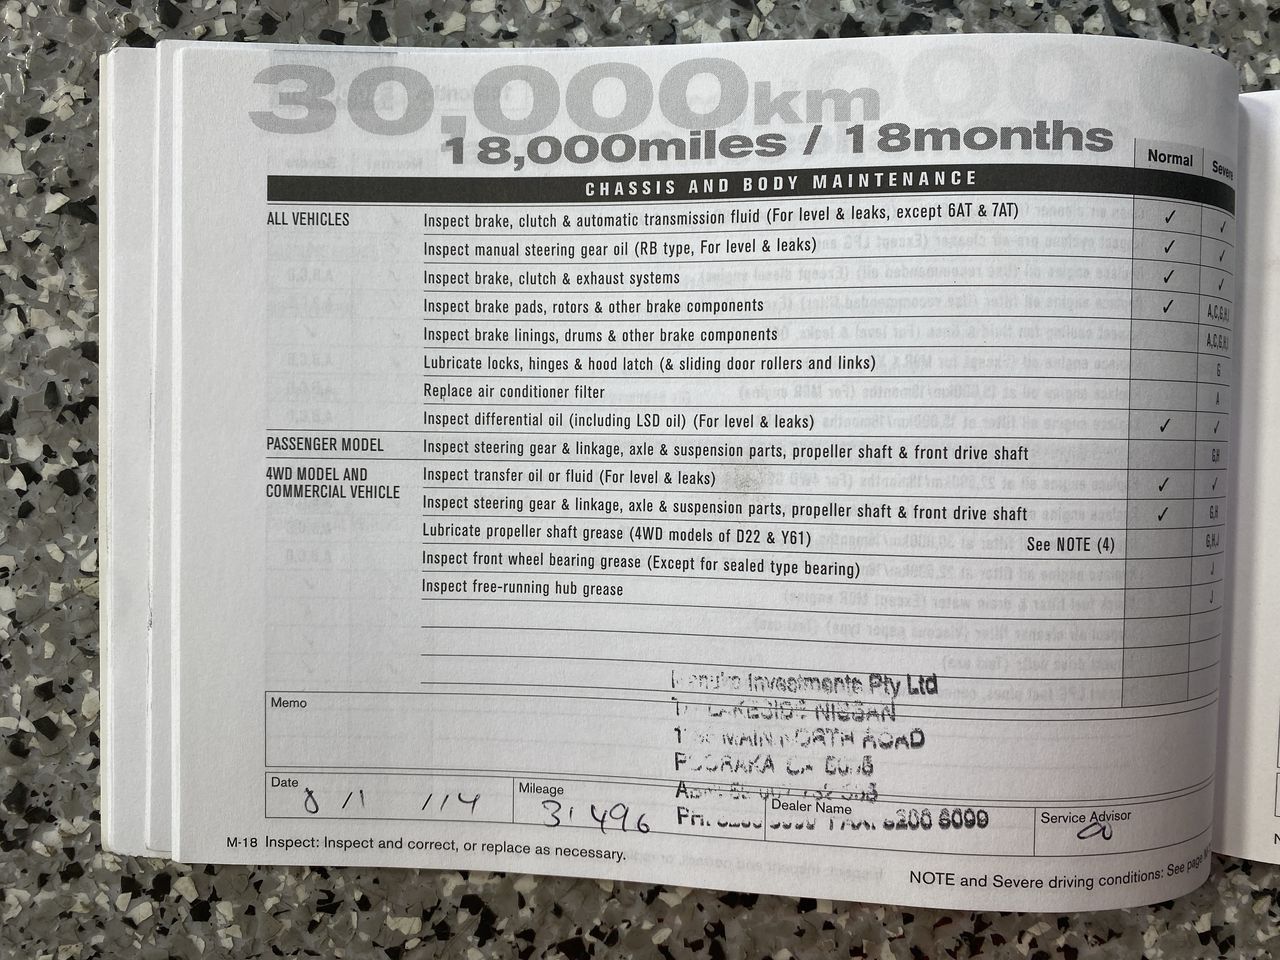 30,000km
18,000miles / 18months
Normal Severe
CHASSIS AND BODY MAINTENANCE
ALL VEHICLES Inspect brake, clutch & automatic transmission fluid (For level & leaks, except 6AT & 7AT) ✓ ✓
Inspect manual steering gear oil (RB type, For level & leaks) ✓ ✓
Inspect brake, clutch & exhaust systems ✓ ✓
Inspect brake pads, rotors & other brake components ✓ A,C,G,H,I
Inspect brake linings, drums & other brake components A,C,G,H,I
Lubricate locks, hinges & hood latch (& sliding door rollers and links) G
Replace air conditioner filter A
Inspect differential oil (including LSD oil) (For level & leaks) ✓ ✓
PASSENGER MODEL Inspect steering gear & linkage, axle & suspension parts, propeller shaft & front drive shaft G,H
4WD MODEL AND Inspect transfer oil or fluid (For level & leaks) ✓ ✓
COMMERCIAL VEHICLE Inspect steering gear & linkage, axle & suspension parts, propeller shaft & front drive shaft ✓ G,H
Lubricate propeller shaft grease (4WD models of D22 & Y61) See NOTE (4) G,H,J
Inspect front wheel bearing grease (Except for sealed type bearing) J
Inspect free-running hub grease J
Investments Pty Ltd
LAKESIDE NISSAN
MAIN NORTH ROAD
POORAKA
Memo
Date 8/1/14 Mileage 31496 Dealer Name Service Advisor
8200 8099
M-18 Inspect: Inspect and correct, or replace as necessary.
NOTE and Severe driving conditions: See page